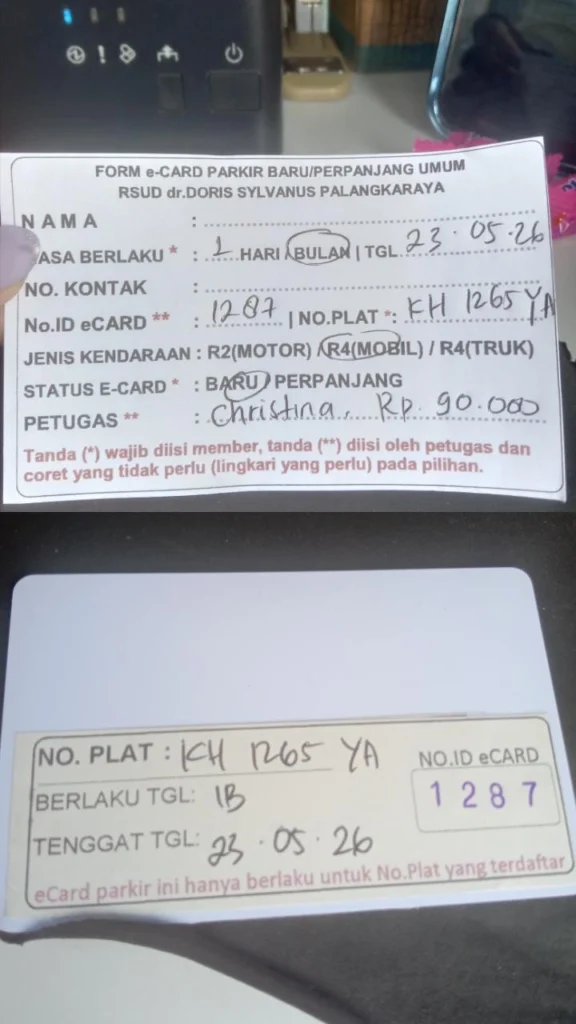 FORM e-CARD PARKIR BARU/PERPANJANG UMUM
RSUD dr.DORIS SYLVANUS PALANGKARAYA
NAMA :
ASA BERLAKU * : 1 HARI / BULAN | TGL. 23.05.26
NO. KONTAK :
No.ID eCARD ** : 1287 | NO.PLAT *: KH 1265 YA
JENIS KENDARAAN : R2(MOTOR) / R4(MOBIL) / R4(TRUK)
STATUS E-CARD * : BARU / PERPANJANG
PETUGAS ** : Christina, Rp. 90.000
Tanda (*) wajib diisi member, tanda (**) diisi oleh petugas dan
coret yang tidak perlu (lingkari yang perlu) pada pilihan.
NO. PLAT : KH 1265 YA
NO.ID eCARD
1287
BERLAKU TGL: 1B
TENGGAT TGL: 23.05.26
eCard parkir ini hanya berlaku untuk No.Plat yang terdaftar